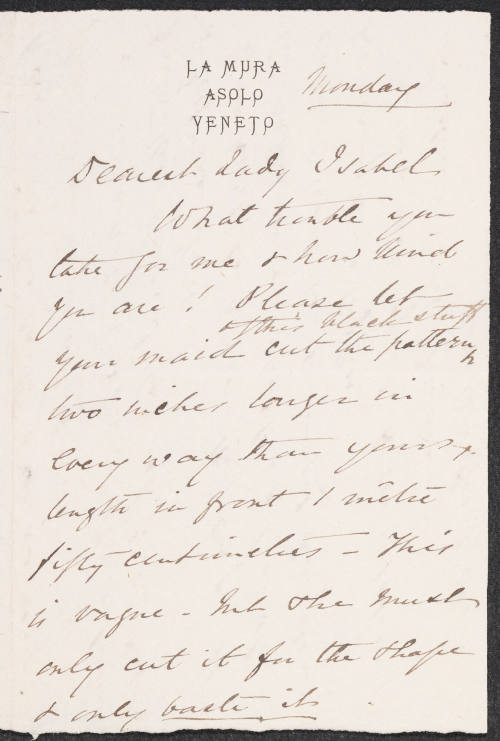 LA MURA
ASOLO
VENETO
Monday
Dearest Lady Isabel
What trouble you
take for me & how kind
you are! Please let
& this black stuff
your maid cut the pattern
two inches longer in
every way than yours &
length in front 1 mètre
fifty centimetres - This
is vague - but she must
only cut it for the shape
& only baste it.